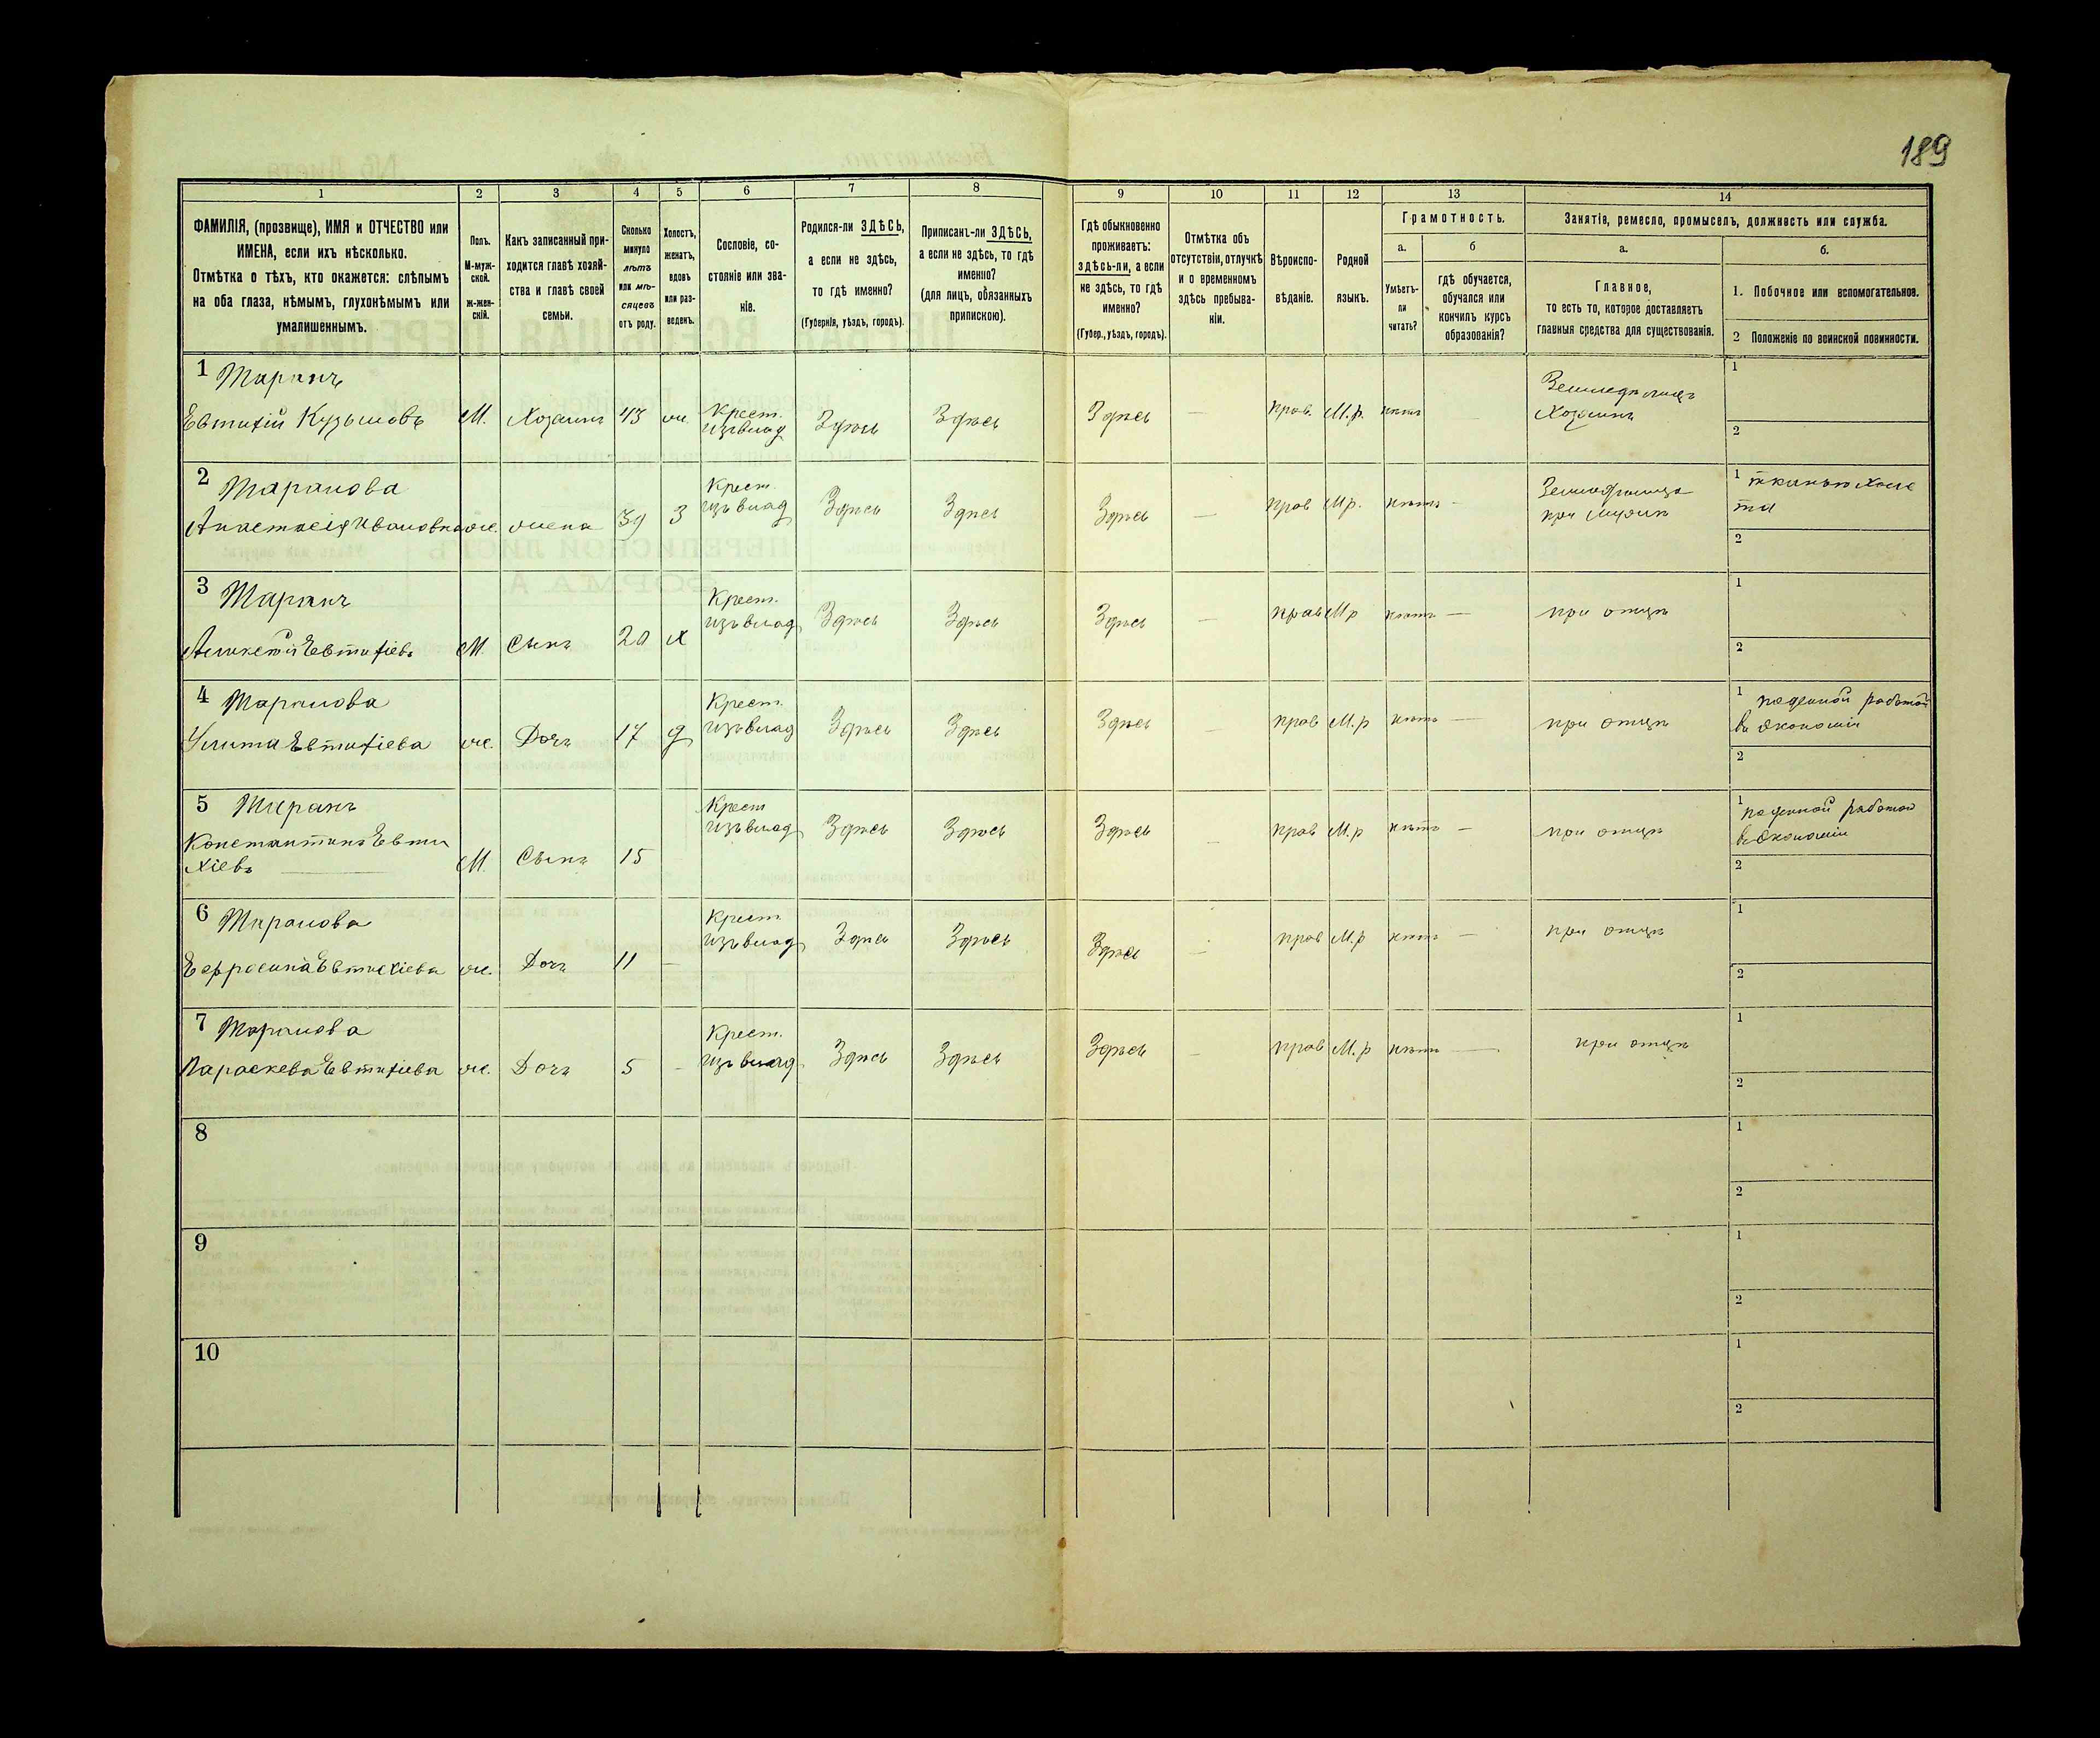 189
1
2
3
4
5
6
7
8
9
10
11
12
13
14
ФАМИЛІЯ, (прозвище), ИМЯ и ОТЧЕСТВО или
ИМЕНА, если ихъ нѣсколько.
Отмѣтка о тѣхъ, кто окажется: слѣпымъ
на оба глаза, нѣмымъ, глухонѣмымъ или
умалишеннымъ.
Полъ.
М-муж-
ской.
ж-жен-
скій.
Какъ записанный при-
ходится главѣ хозяй-
ства и главѣ своей
семьи.
Сколько
минуло
лѣтъ
или мѣ-
сяцевъ
отъ роду.
Холостъ,
женатъ,
вдовъ
или раз-
веденъ.
Сословіе, со-
стояніе или зва-
ніе.
Родился-ли ЗДѢСЬ,
а если не здѣсь,
то гдѣ именно?
(Губернія, уѣздъ, городъ).
Приписанъ-ли ЗДѢСЬ,
а если не здѣсь, то гдѣ
именно?
(для лицъ, обязанныхъ
припискою).
Гдѣ обыкновенно
проживаетъ:
здѣсь-ли, а если
не здѣсь, то гдѣ
именно?
(Губер., уѣздъ, городъ).
Отмѣтка объ
отсутствіи, отлучкѣ
и о временномъ
здѣсь пребыва-
ніи.
Вѣроиспо-
вѣданіе.
Родной
языкъ.
Грамотность.
а.
Умѣетъ-
ли
читать?
б
гдѣ обучается,
обучался или
кончилъ курсъ
образованія?
Занятіе, ремесло, промыселъ, должность или служба.
а.
Главное,
то есть то, которое доставляетъ
главныя средства для существованія.
б.
1. Побочное или вспомогательное.
2 Положеніе по воинской повинности.
1 Таранъ
Евтихій Кузьмовъ М. Хозяинъ 43 ж. Крест. изъ влад Здѣсь Здѣсь Здѣсь — прав. М.р. нѣтъ — Земледѣлецъ Хозяинъ
1
2
2 Таранова
Анастасія Ивановна ж. жена 39 З Крест. изъ влад Здѣсь Здѣсь Здѣсь — прав М.р. нѣтъ — при мужѣ
1 тканьем холс
та
2
3 Таранъ
Алексѣй Евтихіевъ М. Сынъ 20 х Крест. изъ влад Здѣсь Здѣсь Здѣсь — прав М.р нѣтъ — при отцѣ
1
2
4 Таранова
Улита Евтихіева ж. Дочь 17 д Крест. изъ влад Здѣсь Здѣсь Здѣсь — прав М.р нѣтъ — при отцѣ
1 поденной работой
въ экономіи
2
5 Таранъ
Константинъ Евти
хіевъ М. Сынъ 15 Крест изъ влад Здѣсь Здѣсь Здѣсь — прав М.р нѣтъ — при отцѣ
1 поденной работой
въ экономіи
2
6 Таранова
Ефросинія Евтихіева ж. Дочь 11 — Крест изъ влад Здѣсь Здѣсь Здѣсь — прав М.р нѣтъ — при отцѣ
1
2
7 Таранова
Параскева Евтихіева ж. Дочь 5 - Крест. изъ влад. Здѣсь Здѣсь Здѣсь — прав М.р нѣтъ — при отцѣ
1
2
8
1
2
9
1
2
10
1
2